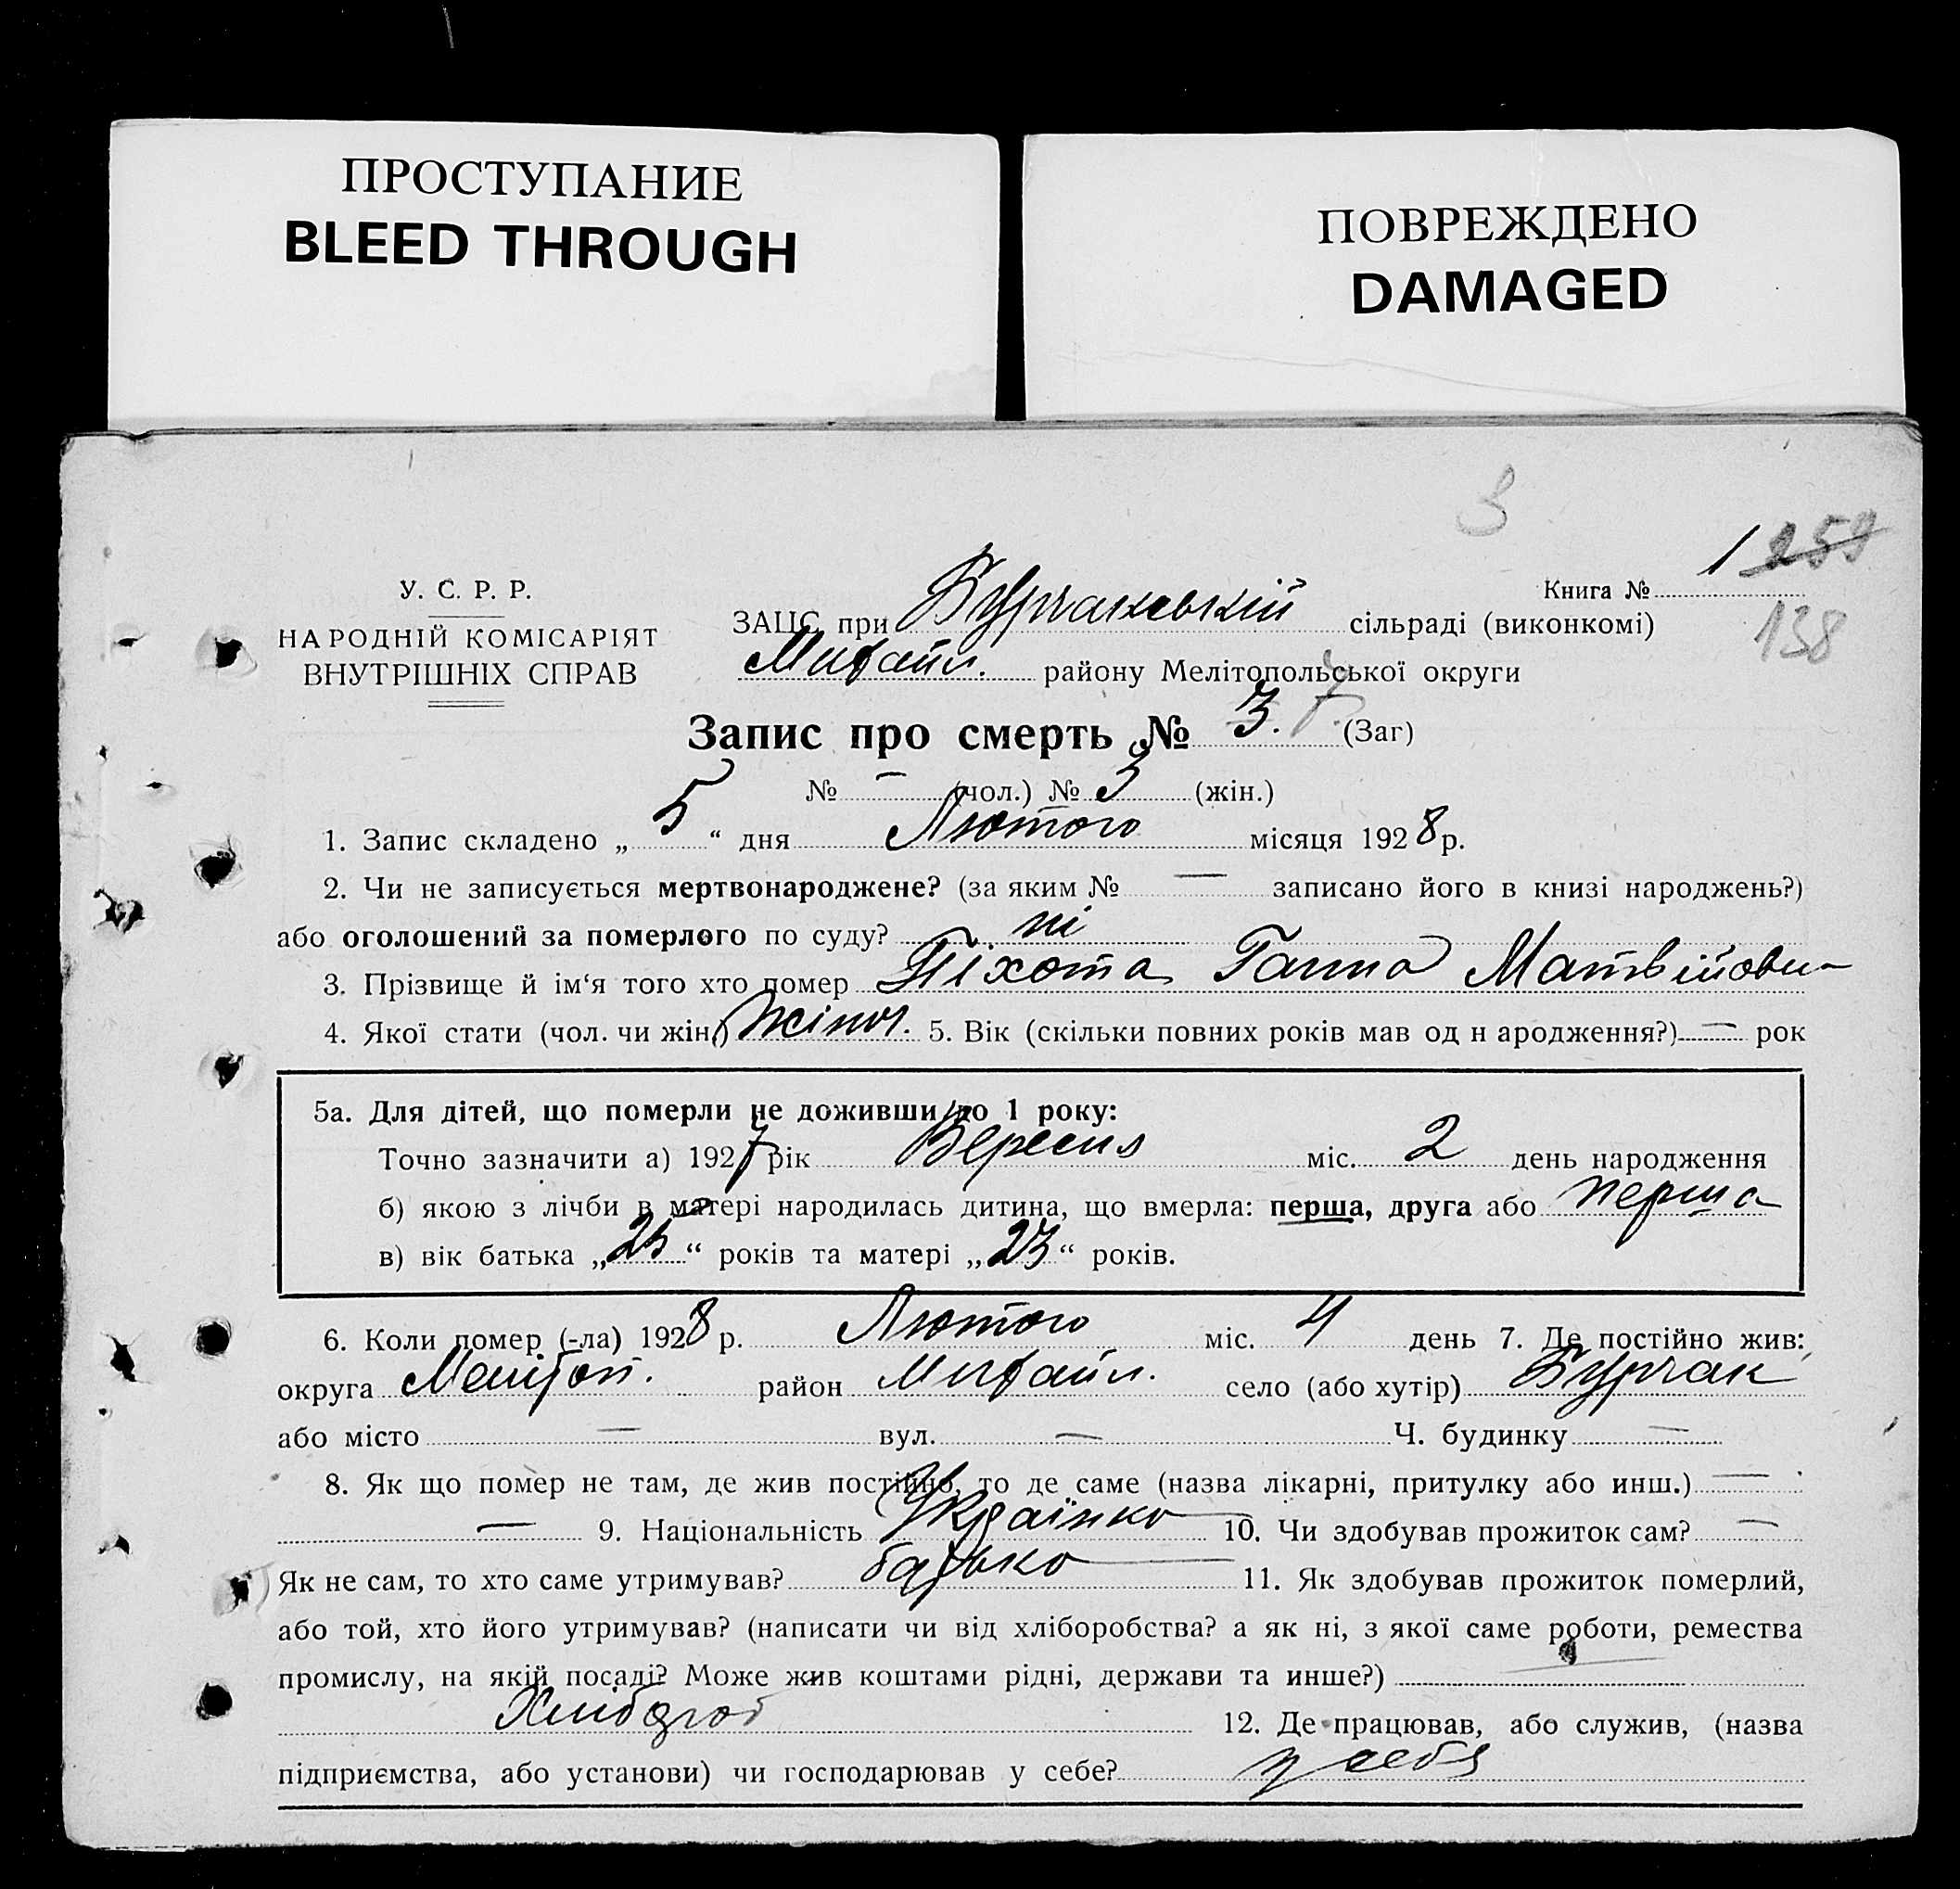 ПРОСТУПАНИЕ
BLEED THROUGH
ПОВРЕЖДЕНО
DAMAGED
3
У. С. Р. Р.
НАРОДНІЙ КОМІСАРІЯТ
ВНУТРІШНІХ СПРАВ
Книга № 1 259
138
ЗАЦС при Бурчаковській сільраді (виконкомі)
Михайл. району Мелітопольської округи
Запис про смерть № 3. 7 (Заг)
№ — (чол.) № 3 (жін.)
1. Запис складено „ 5 “ дня Лютого місяця 1928 р.
2. Чи не записується мертвонароджене? (за яким № — записано його в книзі народжень?)
або оголошений за померлого по суду? ні
3. Прізвище й ім‘я того хто помер Піхота Ганна Матвійовн
4. Якої стати (чол. чи жін.) Жіноч. 5. Вік (скільки повних років мав од н ародження?) — рок
5а. Для дітей, що померли не доживши до 1 року:
Точно зазначити а) 1927 рік Вересня міс. 2 день народження
б) якою з лічби в матері народилась дитина, що вмерла: перша, друга або перша
в) вік батька „ 25 “ років та матері „ 23 “ років.
6. Коли помер (-ла) 1928 р. Лютого міс. 4 день 7. Де постійно жив:
округа Мелітоп. район Михайл. село (або хутір) Бурчак
або місто — вул. — Ч. будинку —
8. Як що помер не там, де жив постійно, то де саме (назва лікарні, притулку або инш.) —
— 9. Національність Українка 10. Чи здобував прожиток сам? —
Як не сам, то хто саме утримував? батько 11. Як здобував прожиток померлий,
або той, хто його утримував? (написати чи від хліборобства? а як ні, з якої саме роботи, ремества
промислу, на якій посаді? Може жив коштами рідні, держави та инше?)
12. Де працював, або служив, (назва
підприємства, або установи) чи господарював у себе? у себя